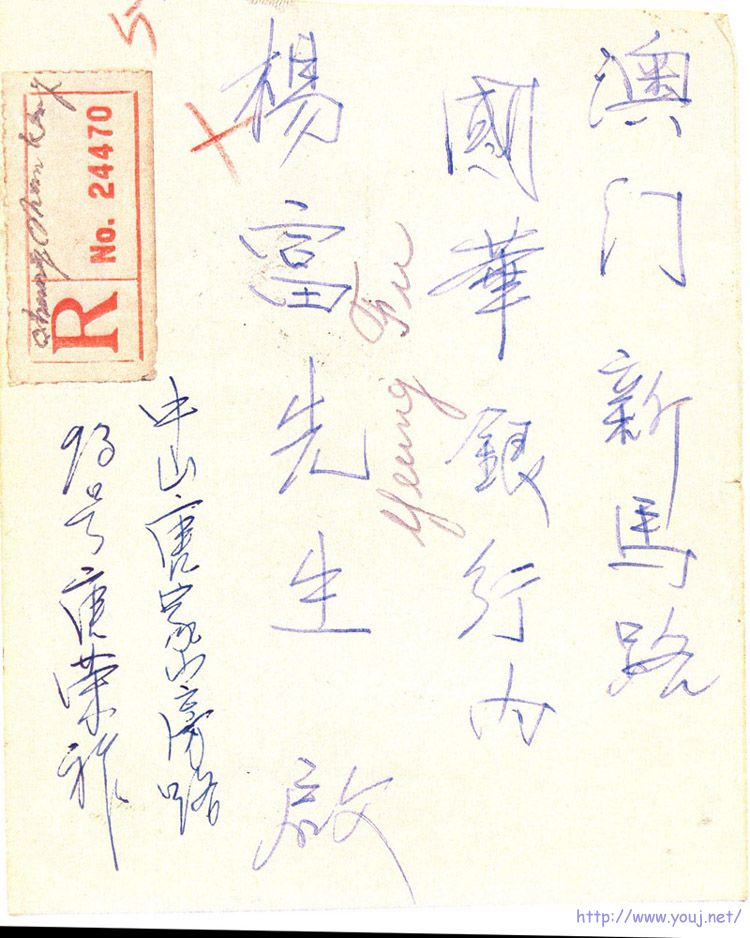 澳门新馬路
國華銀行内
楊富先生 啟
Yeung Fu
中山唐家山房路
93号唐荣祚
R No. 24470
Chung Chun Kong
http://www.youj.net/